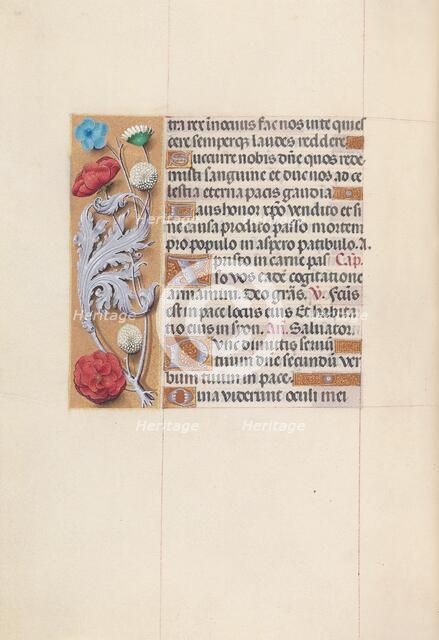 tra rex in cauis fac nos inte quies
cere semperq; laudes reddere
Sucurre nobis dñe quos rede
misti sanguine et duc nos ad ce
lestia eterna pacis gaudia
Laus honor xpo vendito et si
ne causa prodito passo mortem
pro populo in aspero patibulo. A.
xpristo in carne pas Cap.
Et vos eadē cogitatione
armamini. Deo grās. V. Fctus
est in pace locus eius Et habita
tio eius in syon. Añ. Saluator.
Nunc dimittis seruū
tuum dne secundū ver
bum tuum in pace.
Quia viderunt oculi mei
Heritage
Heritage
Heritage
Heritage
Heritage
Heritage